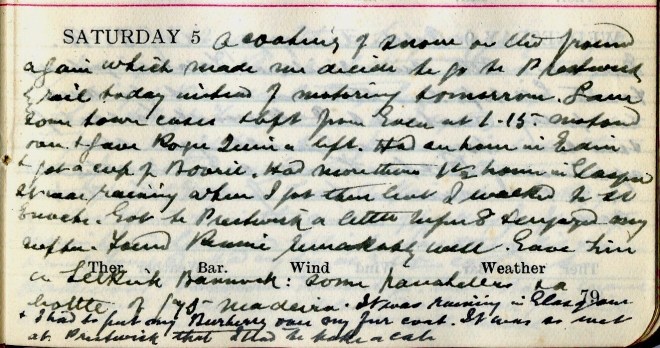 SATURDAY 5 A coating of snow on the ground
again which made me decide to go to Prestwick
by rail today instead of motoring tomorrow. Saw
some town cases & left from at 1-15 motored
over & gave Roger a lift. Had an hour in Edin
& got a cup of Bovril. Had more than 1½ hours in Glasgow
It was raining when I got there but I walked to St
Enoch. Got to Prestwick a little before 8 & enjoyed my
supper. Found remarkably well. Gave him
Ther. Bar. Wind Weather
a Selkirk Bannock: some & a
bottle of Madeira. It was raining in Glasgow
& I had to put my Burberry over my fur coat. It was so wet
at Prestwick that I had to take a cab